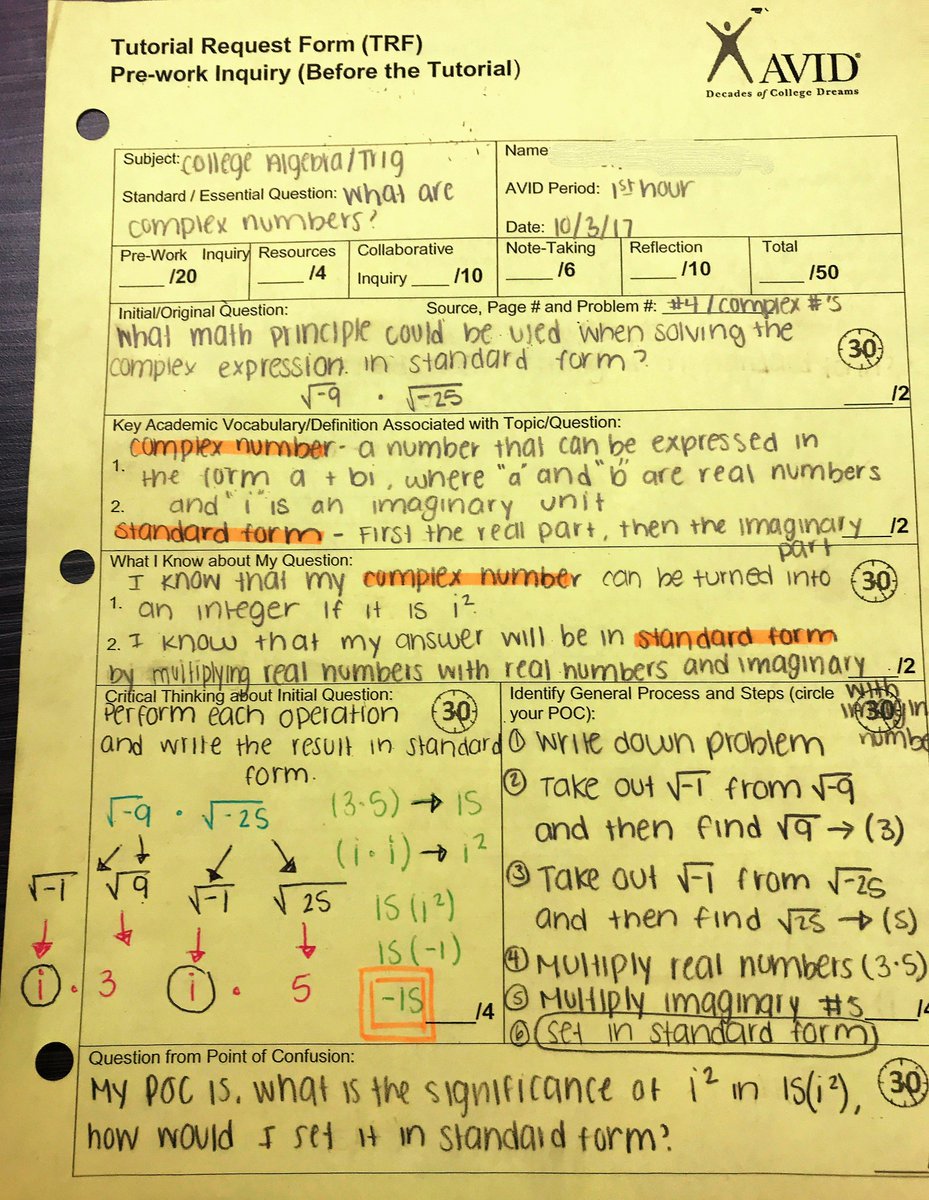 Tutorial Request Form (TRF)
Pre-work Inquiry (Before the Tutorial)
AVID®
Decades of College Dreams
Subject: College Algebra/Trig
Name
Standard / Essential Question: What are
complex numbers?
AVID Period: 1st hour
Date: 10/3/17
Pre-Work Inquiry ____ /20
Resources ____ /4
Collaborative Inquiry ____ /10
Note-Taking ____ /6
Reflection ____ /10
Total ____ /50
Initial/Original Question:
Source, Page # and Problem #: #4/complex #'s
What math principle could be used when solving the
complex expression. in standard form?
30
√-9 · √-25
____/2
Key Academic Vocabulary/Definition Associated with Topic/Question:
complex number - a number that can be expressed in
1. the form a + bi, where "a" and "b" are real numbers
2. and "i" is an imaginary unit
standard form - First the real part, then the imaginary
part
____/2
What I Know about My Question:
I know that my complex number can be turned into
30
1. an integer if it is i²
2. I know that my answer will be in standard form
by multiplying real numbers with real numbers and imaginary
with
imagin
numbe
/2
Critical Thinking about Initial Question:
30
Perform each operation
and write the result in standard
form.
√-9 · √-25
√-1 √9 √-1 √25
i · 3 i · 5
(3·5) → 15
(i·i) → i²
15(i²)
15(-1)
-15
____/4
Identify General Process and Steps (circle
your POC):
30
① Write down problem
② Take out √-1 from √-9
and then find √9 → (3)
③ Take out √-1 from √-25
and then find √25 → (5)
④ Multiply real numbers (3·5)
⑤ Multiply imaginary #s
____/4
⑥ Set in standard form
Question from Point of Confusion:
30
My POC is, what is the significance of i² in 15(i²),
how would I set it in standard form?